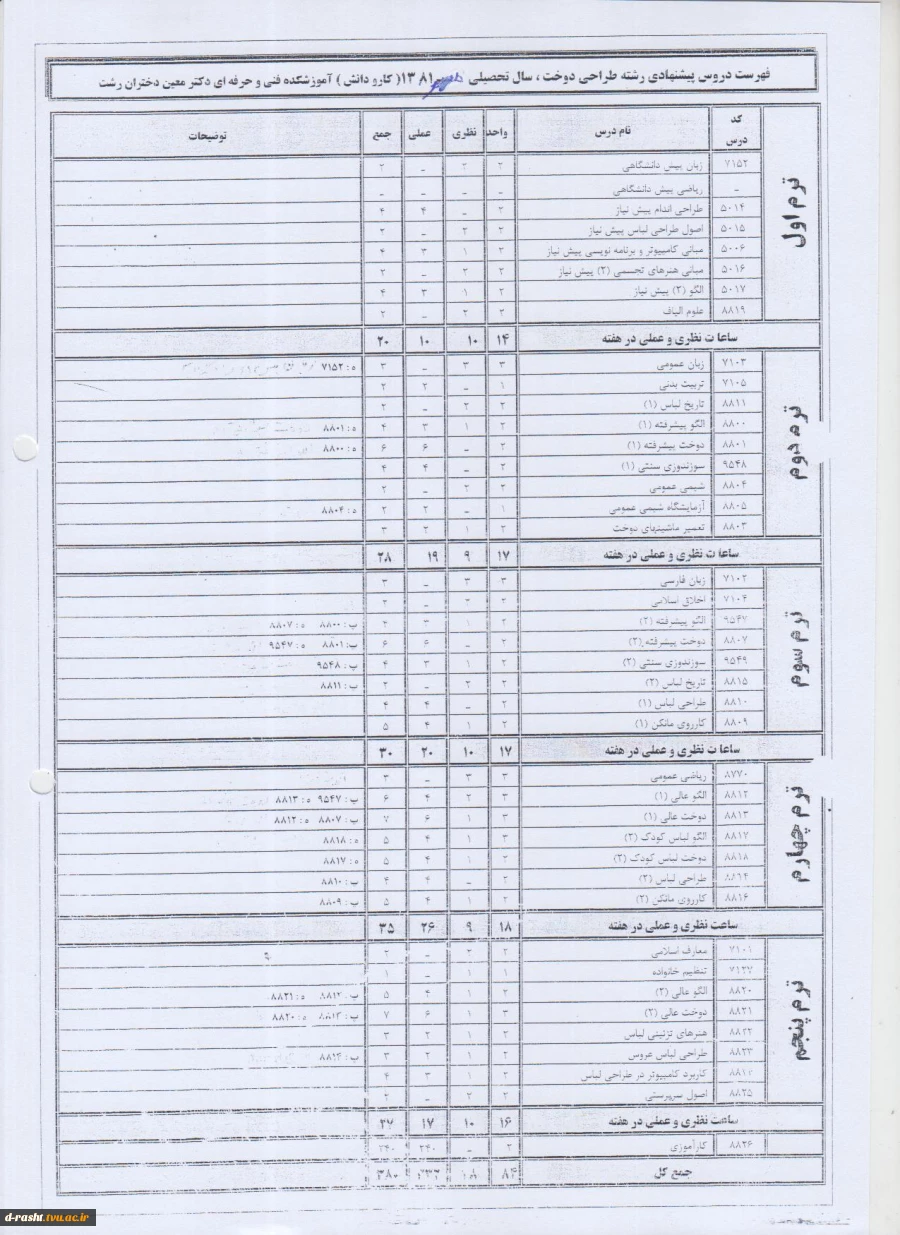 فهرست دروس پیشنهادی رشته طراحی دوخت ، سال تحصیلی ۱۳۸۱ ( کارو دانش ) آموزشکده فنی و حرفه ای دکتر معین دختران رشت
کد درس نام درس واحد نظری عملی جمع توضیحات
ترم اول
۷۱۵۲ زبان پیش دانشگاهی ۲ ۲ _ ۲
_ ریاضی پیش دانشگاهی _ _ _ _
۵۰۱۴ طراحی اندام پیش نیاز ۲ _ ۴ ۴
۵۰۱۵ اصول طراحی لباس پیش نیاز ۲ ۲ _ ۲
۵۰۰۶ مبانی کامپیوتر و برنامه نویسی پیش نیاز ۲ ۱ ۳ ۴
۵۰۱۶ مبانی هنرهای تجسمی (۲) پیش نیاز ۲ ۲ _ ۲
۵۰۱۷ الگو (۲) پیش نیاز ۲ ۱ ۳ ۴
۸۸۱۹ علوم الیاف ۲ ۲ _ ۲
ساعات نظری و عملی در هفته ۱۴ ۱۰ ۱۰ ۲۰
ترم دوم
۷۱۰۳ زبان عمومی ۳ ۳ _ ۳ ه : ۷۱۵۲
۷۱۰۵ تربیت بدنی ۱ _ ۲ ۲
۸۸۱۱ تاریخ لباس (۱) ۲ ۲ _ ۲
۸۸۰۰ الگو پیشرفته (۱) ۲ ۱ ۳ ۴ ه : ۸۸۰۱
۸۸۰۱ دوخت پیشرفته (۱) ۲ _ ۶ ۶ ه : ۸۸۰۰
۹۵۴۸ سوزندوزی سنتی (۱) ۲ _ ۴ ۴
۸۸۰۴ شیمی عمومی ۲ ۲ _ ۲
۸۸۰۵ آزمایشگاه شیمی عمومی ۱ _ ۲ ۲ ه : ۸۸۰۴
۸۸۰۳ تعمیر ماشینهای دوخت ۲ ۱ ۲ ۳
ساعات نظری و عملی در هفته ۱۷ ۹ ۱۹ ۲۸
ترم سوم
۷۱۰۲ زبان فارسی ۳ ۳ _ ۳
۷۱۰۴ اخلاق اسلامی ۲ ۲ _ ۲
۹۵۴۷ الگو پیشرفته (۲) ۲ ۱ ۳ ۴ پ : ۸۸۰۰ ه : ۸۸۰۷
۸۸۰۷ دوخت پیشرفته (۲) ۲ _ ۶ ۶ پ : ۸۸۰۱ ه : ۹۵۴۷
۹۵۴۹ سوزندوزی سنتی (۲) ۲ ۱ ۳ ۴ پ : ۹۵۴۸
۸۸۱۵ تاریخ لباس (۲) ۲ ۲ _ ۲ پ : ۸۸۱۱
۸۸۱۰ طراحی لباس (۱) ۲ _ ۴ ۴
۸۸۰۹ کارروی مانکن (۱) ۲ ۱ ۴ ۵
ساعات نظری و عملی در هفته ۱۷ ۱۰ ۲۰ ۳۰
ترم چهارم
۸۷۷۰ ریاضی عمومی ۳ ۳ _ ۳
۸۸۱۲ الگو عالی (۱) ۳ ۲ ۴ ۶ پ : ۹۵۴۷ ه : ۸۸۱۳
۸۸۱۳ دوخت عالی (۱) ۳ ۱ ۶ ۷ پ : ۸۸۰۷ ه : ۸۸۱۲
۸۸۱۷ الگو لباس کودک (۲) ۳ ۱ ۴ ۵ ه : ۸۸۱۸
۸۸۱۸ دوخت لباس کودک (۲) ۲ ۱ ۴ ۵ ه : ۸۸۱۷
۸۸۱۴ طراحی لباس (۲) ۲ _ ۴ ۴ پ : ۸۸۱۰
۸۸۱۶ کارروی مانکن (۲) ۲ ۱ ۴ ۵ پ : ۸۸۰۹
ساعت نظری و عملی در هفته ۱۸ ۹ ۲۶ ۳۵
ترم پنجم
۷۱۰۱ معارف اسلامی ۲ ۲ _ ۲
۷۱۲۷ تنظیم خانواده ۱ ۱ _ ۱
۸۸۲۰ الگو عالی (۲) ۲ ۱ ۴ ۵ پ : ۸۸۱۲ ه : ۸۸۲۱
۸۸۲۱ دوخت عالی (۲) ۳ ۱ ۶ ۷ پ : ۸۸۱۳ ه : ۸۸۲۰
۸۸۲۲ هنرهای تزئینی لباس ۲ ۱ ۲ ۳
۸۸۲۳ طراحی لباس عروس ۲ ۱ ۲ ۳ پ : ۸۸۱۴
کاربرد کامپیوتر در طراحی لباس ۲ ۱ ۳ ۴
۸۸۲۵ اصول سرپرستی ۲ ۲ _ ۲
ساعت نظری و عملی در هفته ۱۶ ۱۰ ۱۷ ۲۷
۸۸۲۶ کارآموزی ۲ _ ۲۴۰ ۲۴۰
جمع کل ۸۴
d-rasht.tvu.ac.ir